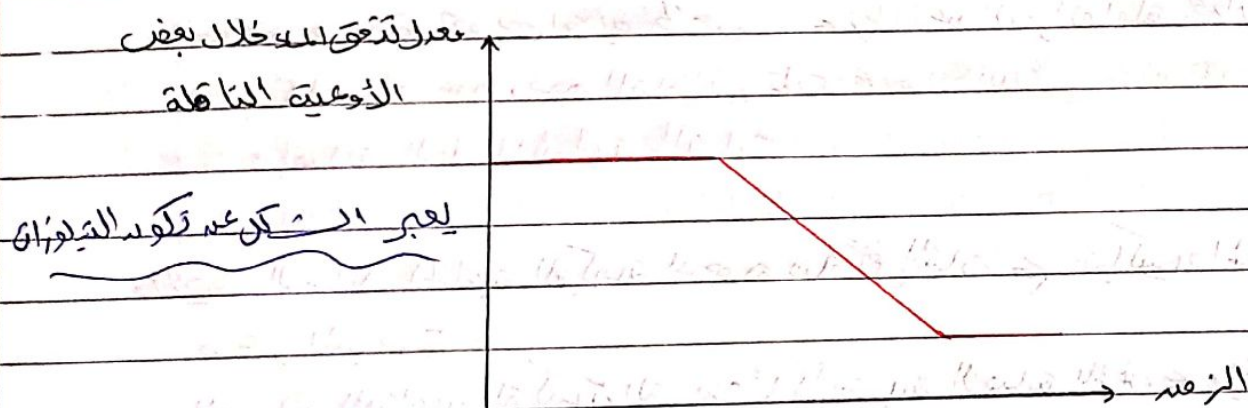 معدل تدفق الماء خلال بعض
الأوعية الناقلة
يعبر الشكل عن تكون التيلوزات
الزمن